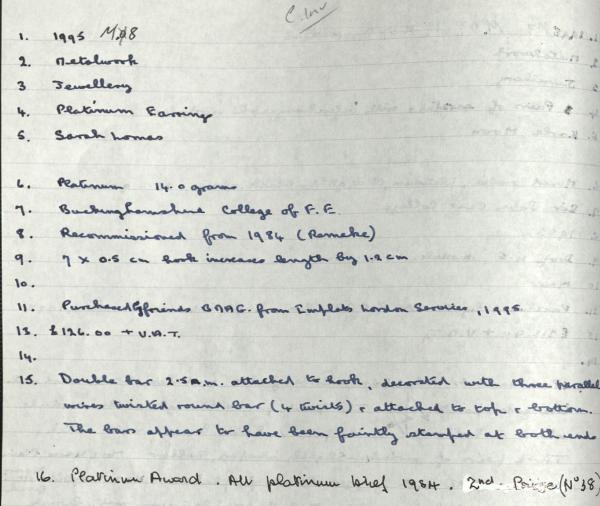 C. Inv
1. 1995 MØ8
2. Metalwork
3 Jewellery
4. Platinum Earrings
5. Sarah Lomas
6. Platinum 14.0 grams
7. Buckinghamshire College of F.E.
8. Recommissioned from 1984 (Remake)
9. 7 x 0.5 cm hook increases length by 1.2 cm
10.
11. Purchased by friends BMAG. from Implats London Services, 1995
13. £126.00 + V.A.T.
14.
15. Double bar 2.5 m.m. attached to hook, decorated with three parallel
wires twisted round bar (4 twists) & attached to top & bottom.
The bars appear to have been faintly stamped at both ends
16. Platinum Award. All platinum brief 1984. 2nd Prize (No 38)